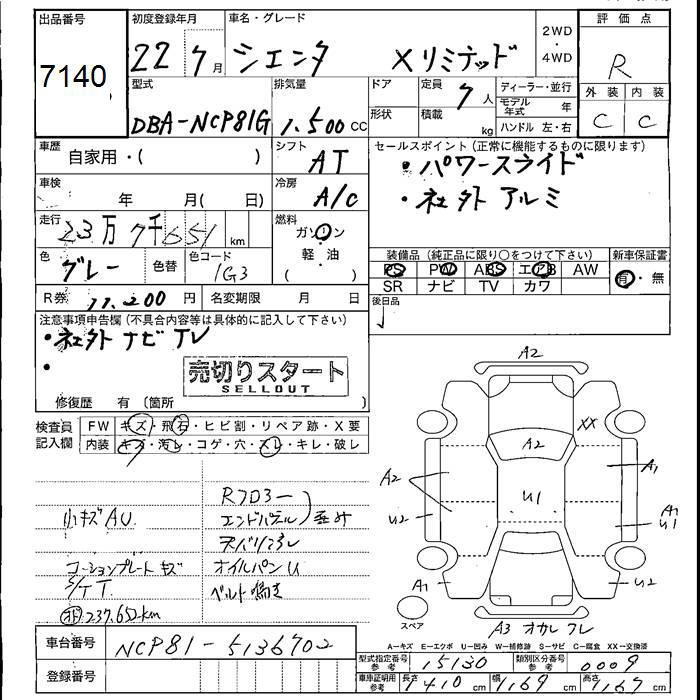 出品番号 初度登録年月 車名・グレード 2WD・4WD 評価点
7140 22 7月 シエンタ Xリミテッド R
型式 排気量 ドア 定員 7人 ディーラー・並行 外装 内装
DBA-NCP81G 1.500cc 形状 積載 kg モデル年式 年 C C
ハンドル 左・右
車歴 自家用・( ) シフト AT セールスポイント(正常に機能するものに限ります)
・パワースライド
車検 年 月( 日) 冷房 A/C ・社外アルミ
走行 23万7千651km 燃料 ガソリン
軽・油
( )
色 グレー 色替 色コード 1G3 装備品(純正品に限り○をつけて下さい) 新車保証書
PS PW ABS エアB AW 有・無
SR ナビ TV カワ
R券 11.200円 名変期限 月 日 後日品
注意事項申告欄(不具合内容等は具体的に記入して下さい)
・社外ナビTV
・
売切りスタート
SELLOUT
修復歴 有(箇所 )
検査員記入欄 FW キズ・飛石・ヒビ割・リペア跡・X要
内装 キズ・汚れ・コゲ・穴・スレ・キレ・破レ
A2
XX
A2
A2 A1
U1
U2 A1 U1
A1 U2
スペア
A3
小キズAU.
コーションプレートキズ
237.652km
エンドパネル
オイルパンU
ベルト鳴き
A-キズ E-エクボ U-凹み W-補修跡 S-サビ C-腐食 XX-交換済
車台番号 NCP81-5136702
型式指定番号参考 15130 類別区分番号参考 0009
登録番号
車庫証明用参考 長さ 410cm 幅 169cm 高さ 167cm